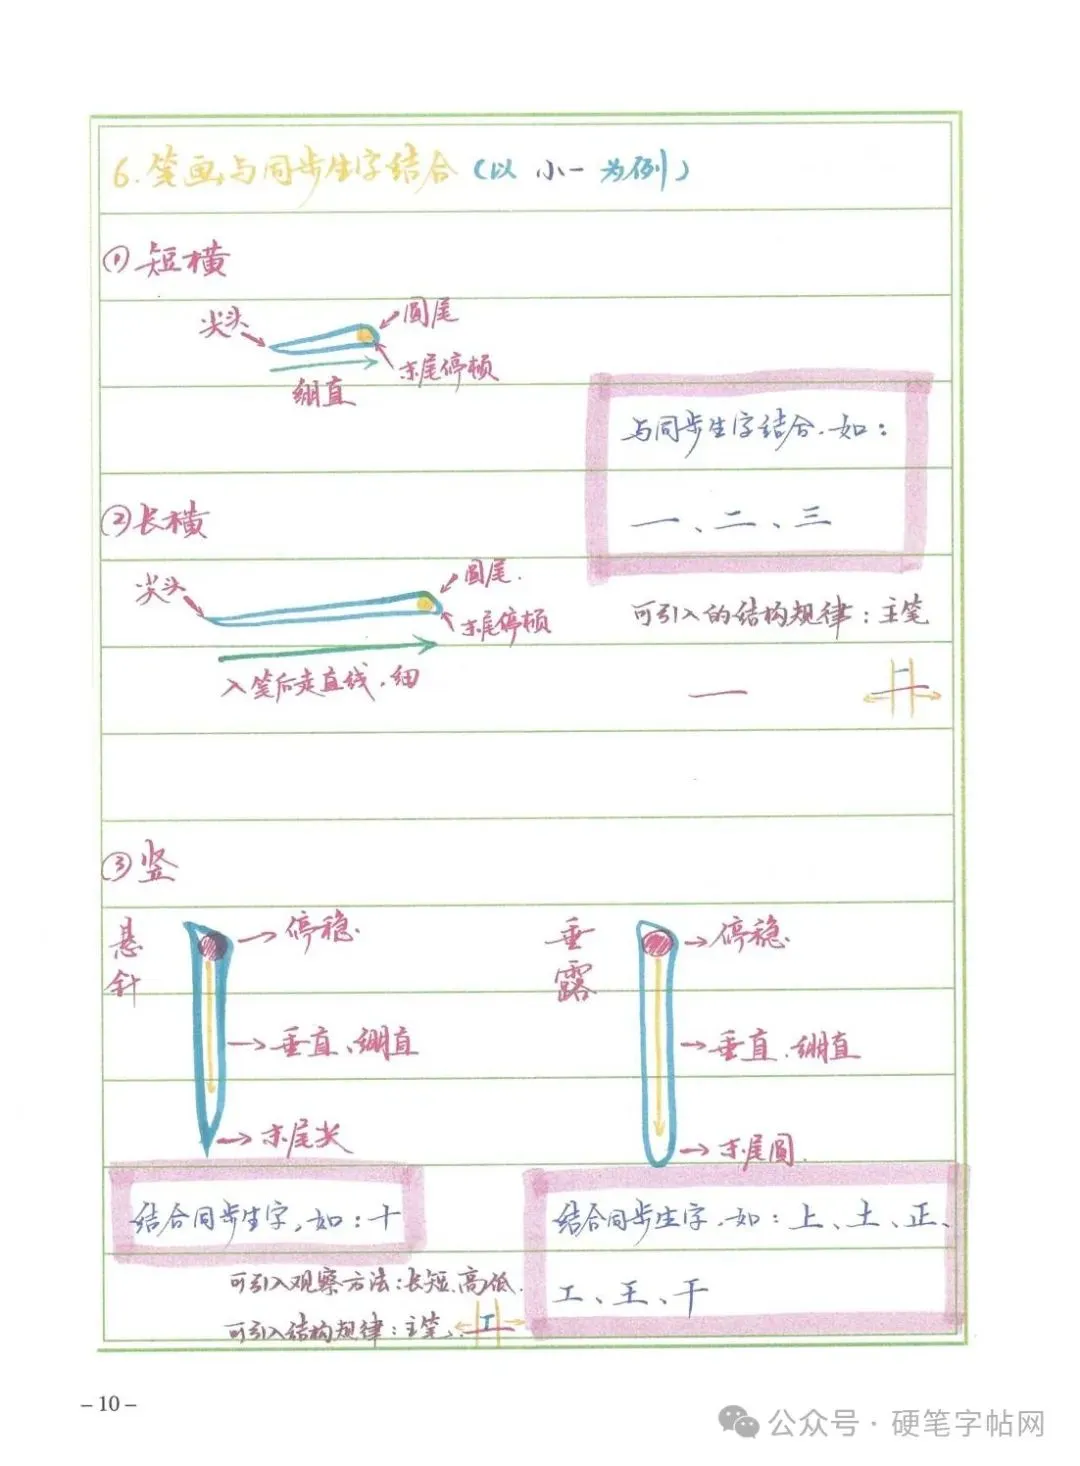 6.笔画与同步生字结合（以 小一 为例）
①短横
尖头
圆尾
末尾停顿
绷直
与同步生字结合.如：
一、二、三
②长横
尖头
圆尾.
末尾停顿
入笔后走直线.细
可引入的结构规律：主笔
③竖
悬针
停稳.
垂直、绷直
末尾尖
垂露
停稳.
垂直.绷直
末尾圆.
结合同步生字,如：十
可引入观察方法：长短.高低.
可引入结构规律：主笔.
结合同步生字.如：上、土、正、
工、王、干
–10–
公众号·硬笔字帖网